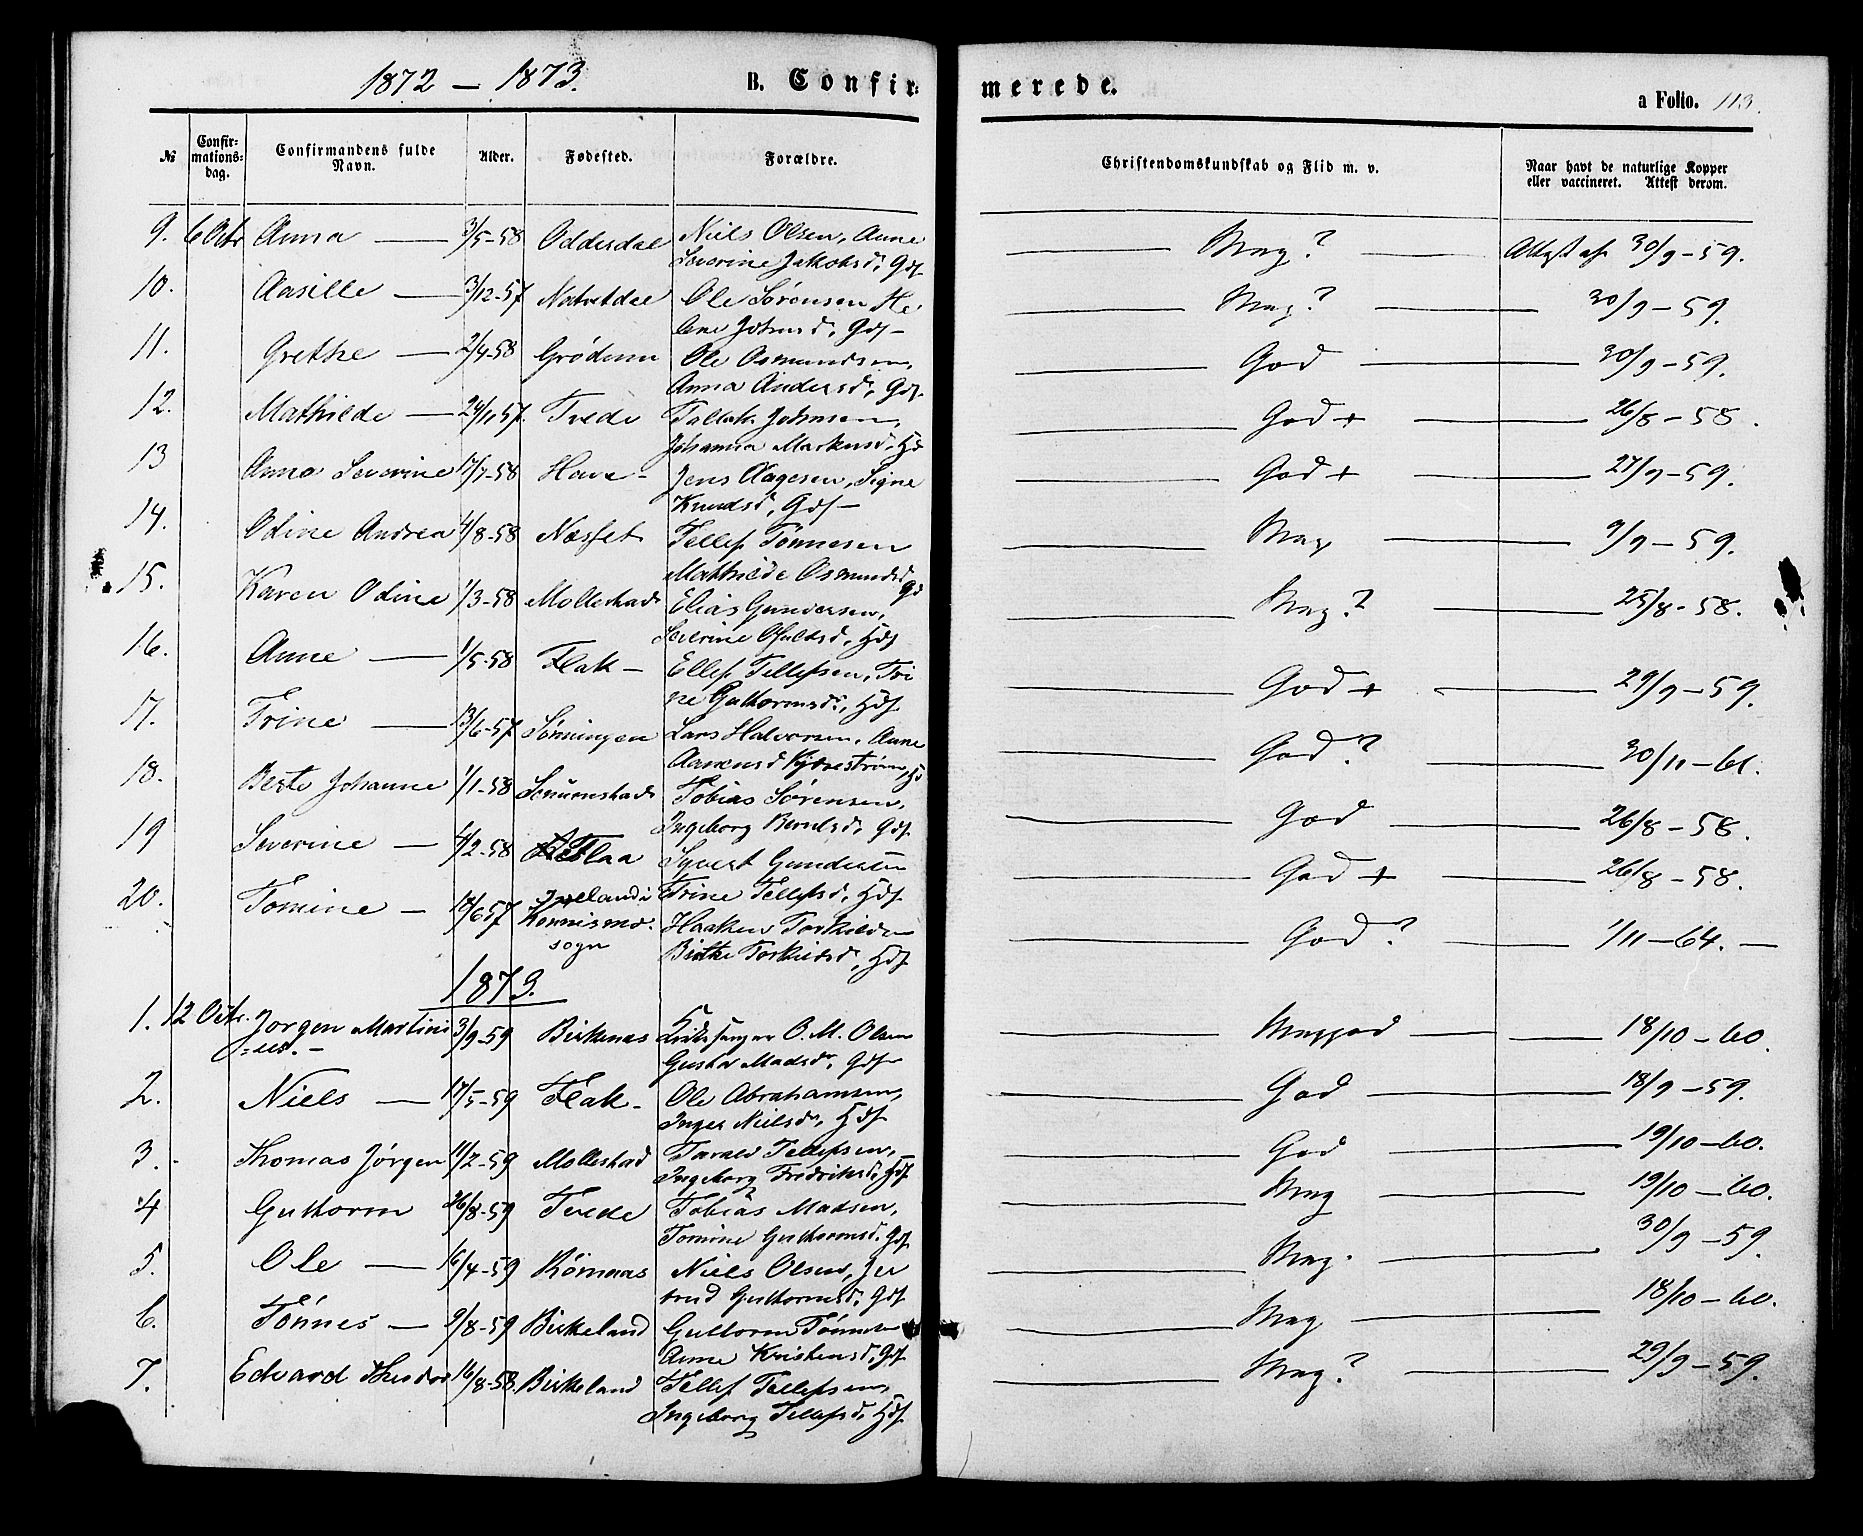 1872 – 1873.
B. Confir-
merede.
a Folio. 113.
№
Confir-
mations-
dag.
Confirmandens fulde
Navn.
Alder.
Fødested.
Forældre.
Christendomskundskab og Flid m. v.
Naar havt de naturlige Kopper
eller vaccineret. Attest derom.
9. 6 Octr Anna — 3/5-58 Oddersdal Niels Olsen, Anne Mag? Attest af 30/9-59.
Severine Jakobsd, Gdf
10. Aasille — 3/12-57 Natvetdal Ole Sørensen Mag? 30/9-59.
Ane Johnsd, Gdf-
11. Grethe — 2/4-58 Grødum Ole Osmundsen, God 30/9-59.
Anna Andersd, Gdf.
12. Mathilde — 24/11 57. Tvede Tallak Johnsen, God + 26/8-58.
Johanna Markusd,
13 Anna Severine 17/7-58 Have- Jens Aagesen, Signe God + 27/9-59.
Knudsd, Gdf-
14. Odine Andrea 4/8-58 Næsset Tellef Tønnesen Mag 9/9-59.
Mathilde Osmundsd Gd
15. Karen Odine 1/3-58 Mollestad Elias Gundersen, Mag? 25/8-58.
Severine Osuldsd, Hdf
16. Anne — 1/5-58 Flak- Ellef Tellefsen, Tri God + 29/9-59.
ne Guttormsd, Hdf
17. Trine — 13/6-57 Sønningen Lars Halvorsen, Anne God? 30/11-61.
Aanensd
18. Berte Johanne 1/1-58 Senumstad Tobias Sørensen, God 26/8-58.
Ingeborg Berntsd, Gdf.
19 Severine — 4/2-58 Flaa Syvert Gundersen God + 26/8-58.
Trine Tellefsd, Hdf
20. Tomine — 18/6 57 Iveland i
Konnismo. Haaken Torkildsen God? 1/11-64. —
sogn Birthe Torkildsd, Hdf
1873.
1. 12 Octr. Jørgen Martini 3/9-59 Birkenæs Kirkesanger O. M. Olsen Megjod 18/10-60.
=us. - Gusta Madsd, Gdf
2. Niels — 17/5-59 Flak- Ole Abrahamsen, God 18/9-59.
Inger Nielsd, Hdf
3. Thomas Jørgen 11/2-59 Mollestad Tarald Tellefsen, God 19/10-60.
Ingeborg Fredriksd, Hdf
4 Guttorm 26/8-59 Tvede Tobias Madsen, Mag 19/10-60.
Tomine Guttormsd. Gdf
5. Ole — 16/4-59 Rømnæs Niels Olsen, Jer Mag. 30/9-59.
trud Guttormsd, Gdf
6. Tønnes — 9/8-59 Birkeland Guttorm Tønnesen Mag 18/10-60.
Anne Kristensd, Gdf
7. Edvard Theodor 16/8-58. Birkeland Tellef Tellefsen, Mag? 29/9-59.
Ingeborg Tellefsd, Hdf